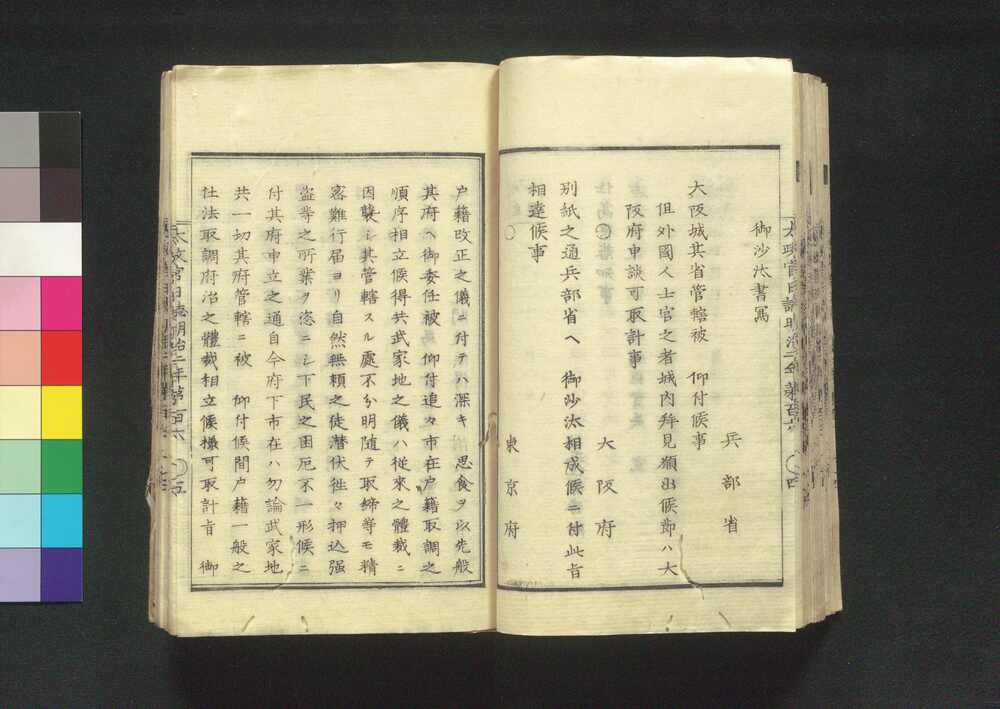 御沙汰書寫
兵部省
大阪城其省管轄被 仰付候事
但外國人士官之者城内拜見願出候節ハ大
阪府申談可取計事
○ 大阪府
別紙之通兵部省へ 御沙汰相成候ニ付此旨
相達候事
○ 東京府
戸籍改正之儀ニ付テハ深キ 思食ヲ以先般
其府へ御委任被 仰付追々市在戸籍取調之
順序相立候得共武家地之儀ハ從來之體裁ニ
因襲シ其管轄スル處不分明随テ取締等モ精
密難行届ヨリ自然無頼之徒潜伏徃々押込强
盗等之所業ヲ恣ニシ下民之困厄不一形候ニ
付其府申立之通自今府下市在ハ勿論武家地
共一切其府管轄ニ被 仰付候間戸籍一般之
仕法取調府治之體裁相立候様可取計旨 御
太政官日誌明治二年第百六 ○五